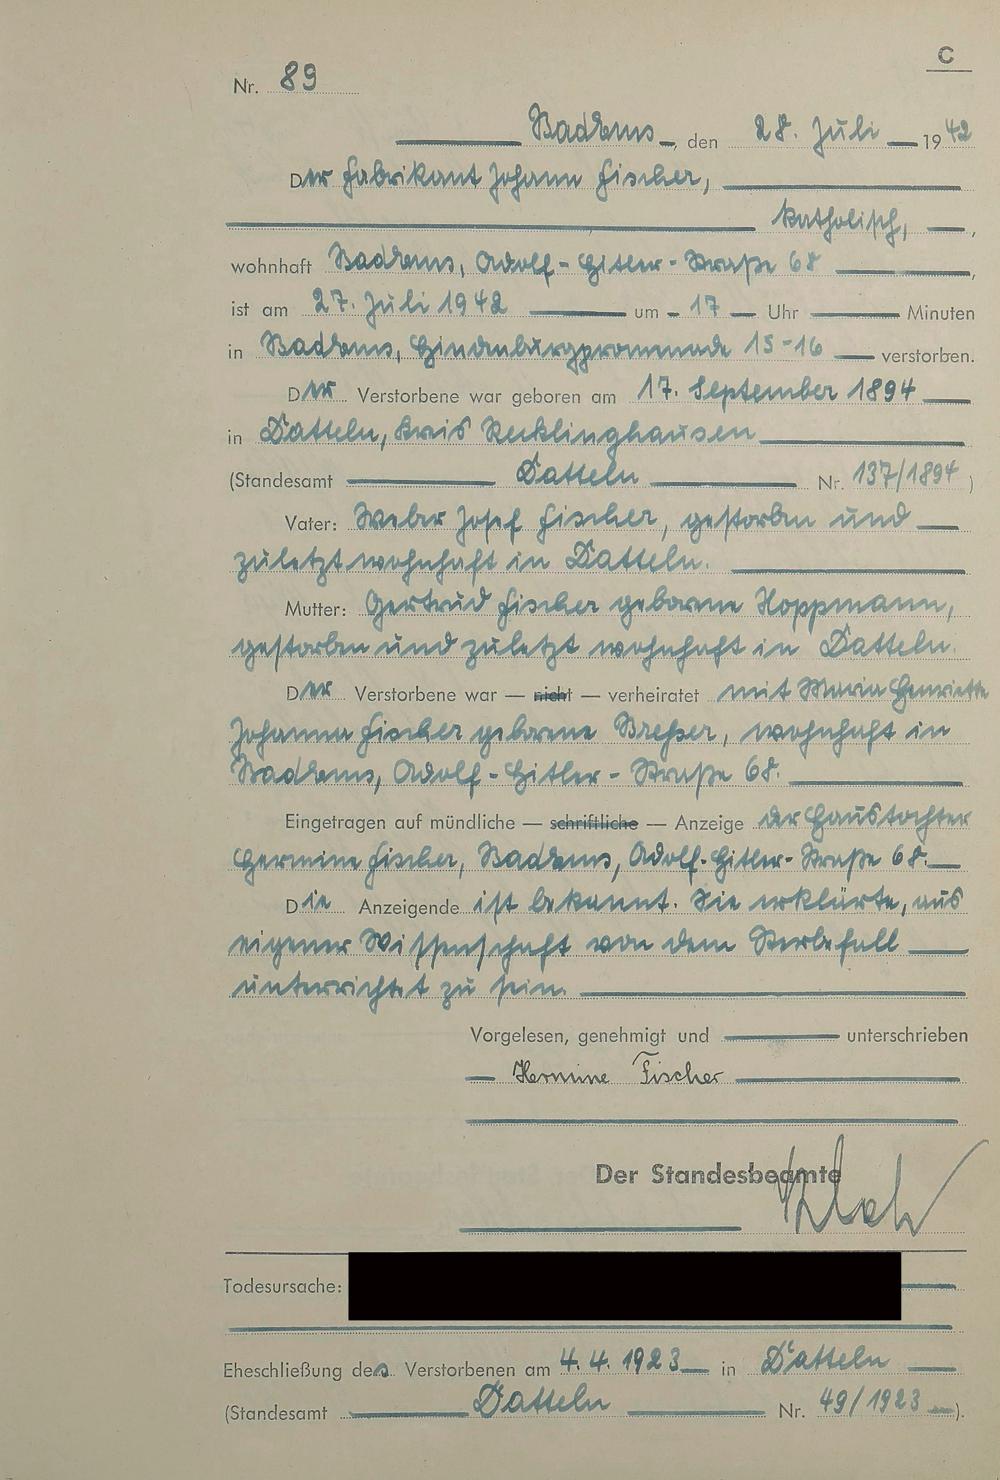 C
Nr. 89
Bad Ems, den 28. Juli 1942
Der Fabrikant Johann Fischer,
katholisch,
wohnhaft Bad Ems, Adolf-Hitler-Straße 68
ist am 27. Juli 1942 um 17 Uhr Minuten
in Bad Ems, Hindenburgpromenade 15-16 verstorben.
Der Verstorbene war geboren am 17. September 1894
in Datteln, Kreis Recklinghausen
(Standesamt Datteln Nr. 137/1894)
Vater: Weber Josef Fischer, gestorben und
zuletzt wohnhaft in Datteln.
Mutter: Gertrud Fischer geborene Hoppmann,
gestorben und zuletzt wohnhaft in Datteln.
Der Verstorbene war — nicht — verheiratet mit Maria Henriette
Johanna Fischer geborene, wohnhaft in
Bad Ems, Adolf-Hitler-Straße 68.
Eingetragen auf mündliche — schriftliche — Anzeige der Haustochter
Hermine Fischer, Bad Ems, Adolf-Hitler-Straße 68.
Die Anzeigende ist bekannt. Sie erklärte, aus
eigener Wissenschaft von dem Sterbefall
unterrichtet zu sein.
Vorgelesen, genehmigt und unterschrieben
Hermine Fischer
Der Standesbeamte
Todesursache:
Eheschließung des Verstorbenen am 4.4.1923 in Datteln
(Standesamt Datteln Nr. 49/1923).